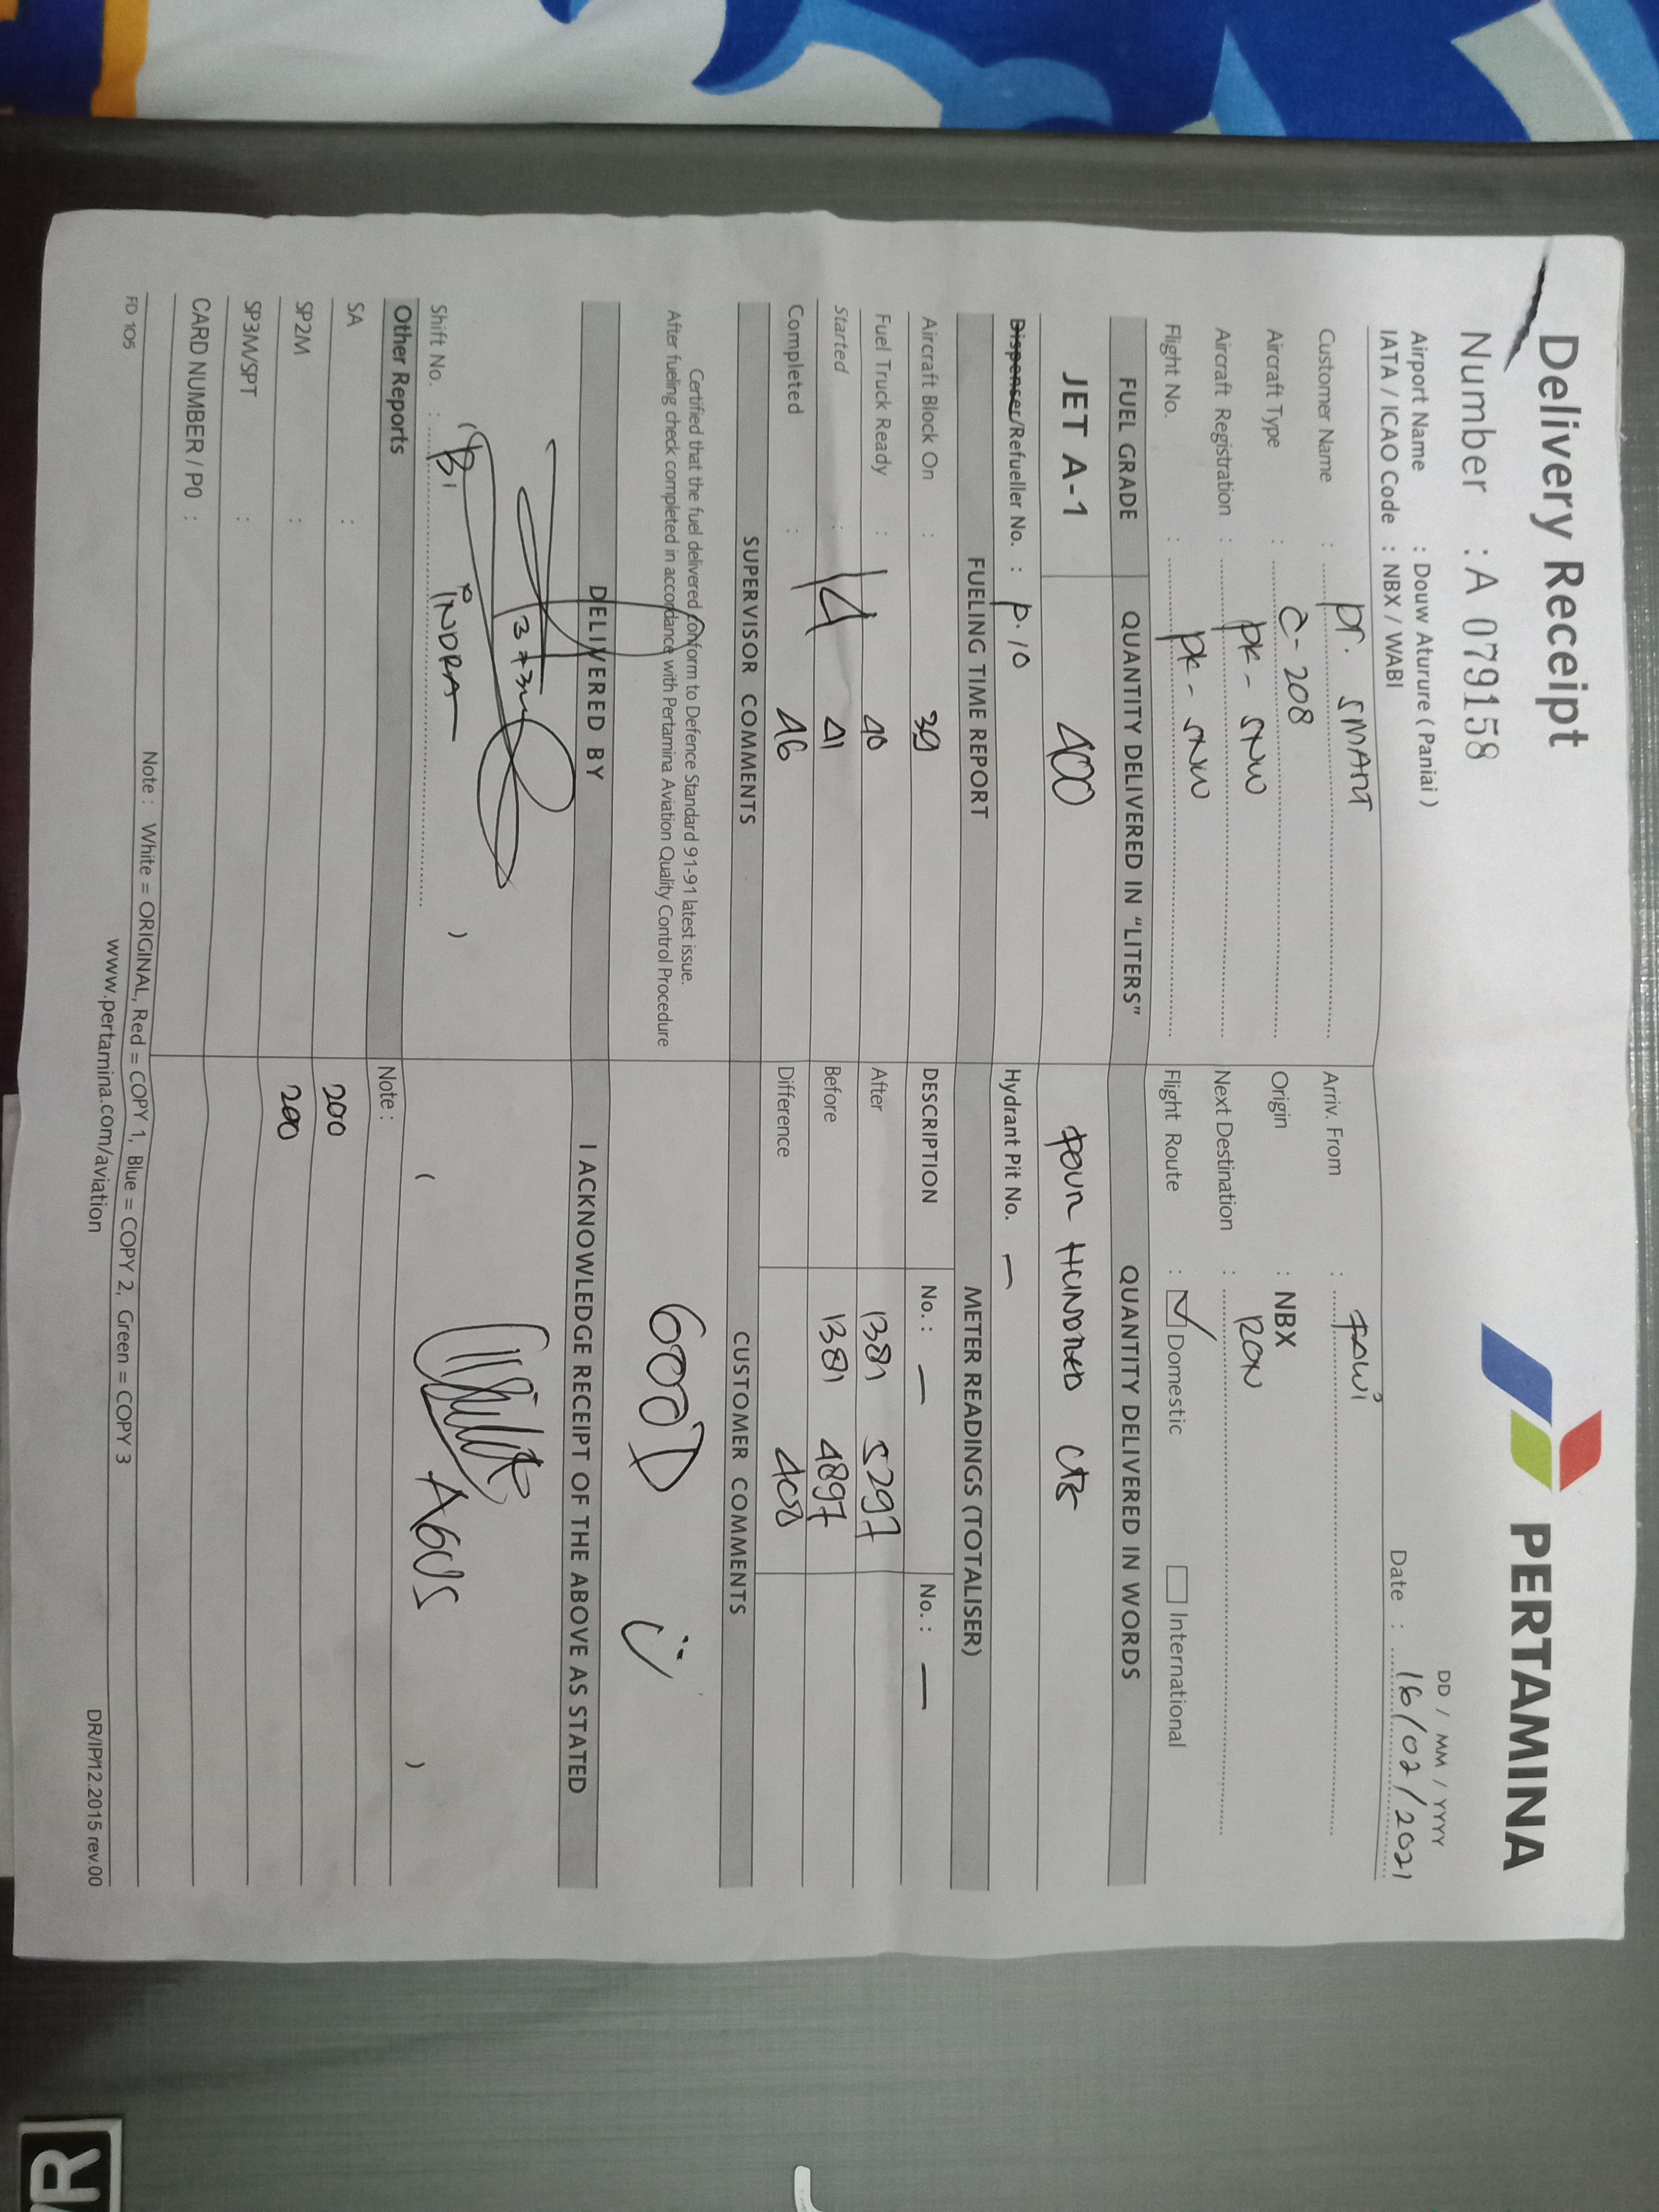 Delivery Receipt
PERTAMINA
Number : A 079158
DD / MM / YYYY
Airport Name : Douw Aturure ( Paniai )
Date : 16/02/2021
IATA / ICAO Code : NBX / WABI
Customer Name : PT. SMART
Arriv. From :
Aircraft Type : C-208
Origin : NBX
Aircraft Registration : PK - SNW
Next Destination : RON
Flight No. : PK - SNW
Flight Route : Domestic International
FUEL GRADE QUANTITY DELIVERED IN "LITERS" QUANTITY DELIVERED IN WORDS
JET A-1 400 FOUR HUNDRED LTR
Dispenser/Refueller No. : P.10
Hydrant Pit No. —
FUELING TIME REPORT METER READINGS (TOTALISER)
Aircraft Block On : 39 DESCRIPTION No. : — No. : —
Fuel Truck Ready : 40 After 5297
Started : 14 41 Before 4897
Completed : 46 Difference 400
SUPERVISOR COMMENTS CUSTOMER COMMENTS
Certified that the fuel delivered conform to Defence Standard 91-91 latest issue.
After fueling check completed in accordance with Pertamina Aviation Quality Control Procedure
GOOD
DELIVERED BY I ACKNOWLEDGE RECEIPT OF THE ABOVE AS STATED
INDRA
AGUS
Shift No. :
Other Reports Note :
SA : 200
SP2M : 200
SP3M/SPT :
CARD NUMBER / PO :
Note : White = ORIGINAL, Red = COPY 1, Blue = COPY 2, Green = COPY 3
FD 105
www.pertamina.com/aviation
DR/IP/12.2015 rev.00
R